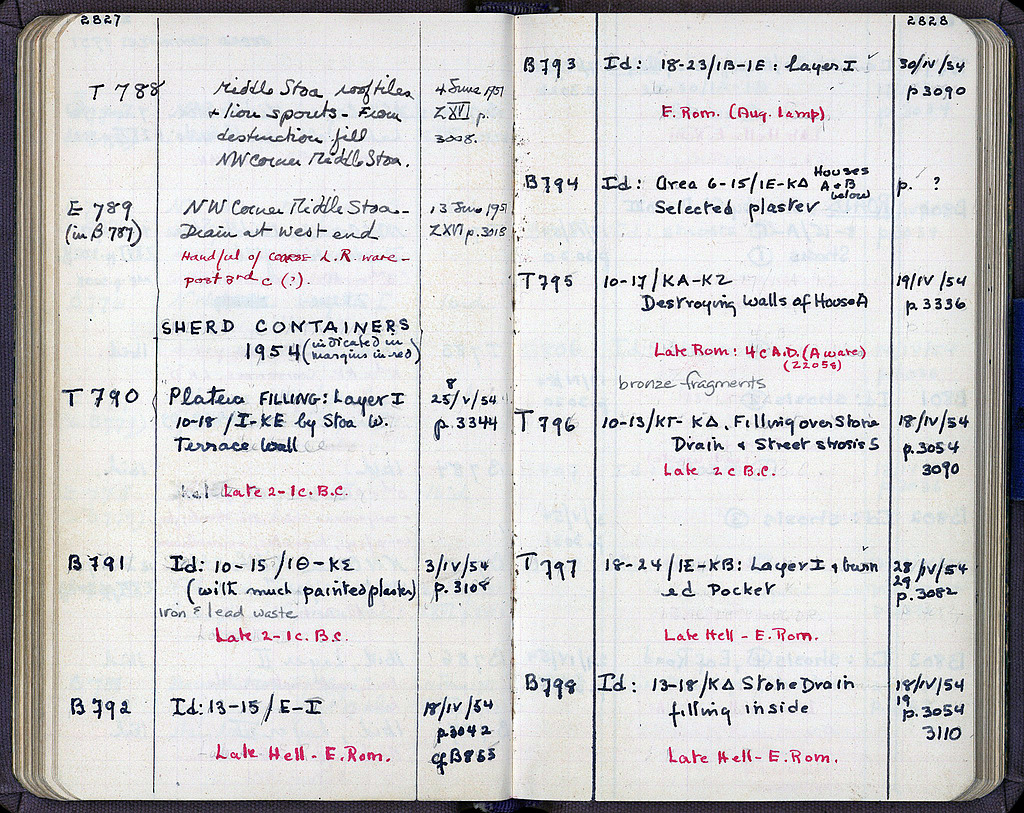 2827
T 788 Middle Stoa rooftiles 4 June 1951
+ lion spouts - From ZXVI p.
destruction fill 3008.
NW Corner Middle Stoa.
E 789 NW Corner Middle Stoa - 13 June 1951
(in B 787) Drain at west end ZXVI p. 3018
Handful of coarse L.R. ware -
post 3rd c (?).
SHERD CONTAINERS
1954 (indicated in
margins in red)
T 790 Plateia FILLING: Layer I 25/V/54
8
10-18 / I-KE by Stoa W. p. 3344
Terrace Wall
Late 2-1c. B.C.
B 791 Id: 10-15/IΘ-KΣ 3/IV/54
(with much painted plaster) p. 3108
iron & lead waste
Late 2-1c. B.C.
B 792 Id: 13-15/E-I 18/IV/54
p.3042
Late Hell - E. Rom. cf B855
2828
B793 Id: 18-23/IB-IE: Layer I. 30/IV/54
p 3090
E. Rom. (Aug. Lamp)
B794 Id: Area 6-15/IE-KΔ Houses A & B below p. ?
Selected plaster
T795 10-17/KA-KZ 19/IV/54
Destroying walls of House A p. 3336
Late Rom: 4c A.D. (A ware)
(22058)
bronze fragments
T 796 10-13/KΓ-KΔ. Filling over Stone 18/IV/54
Drain & Street strosis 5 p.3054
Late 2c B.C. 3090
T 797 18-24/IE-KB: Layer I & burn 28/IV/54
29
ed Pocket p. 3082
Late Hell - E. Rom.
B798 Id: 13-18/KΔ Stone Drain 18/IV/54
19
filling inside p. 3054
3110
Late Hell - E. Rom.